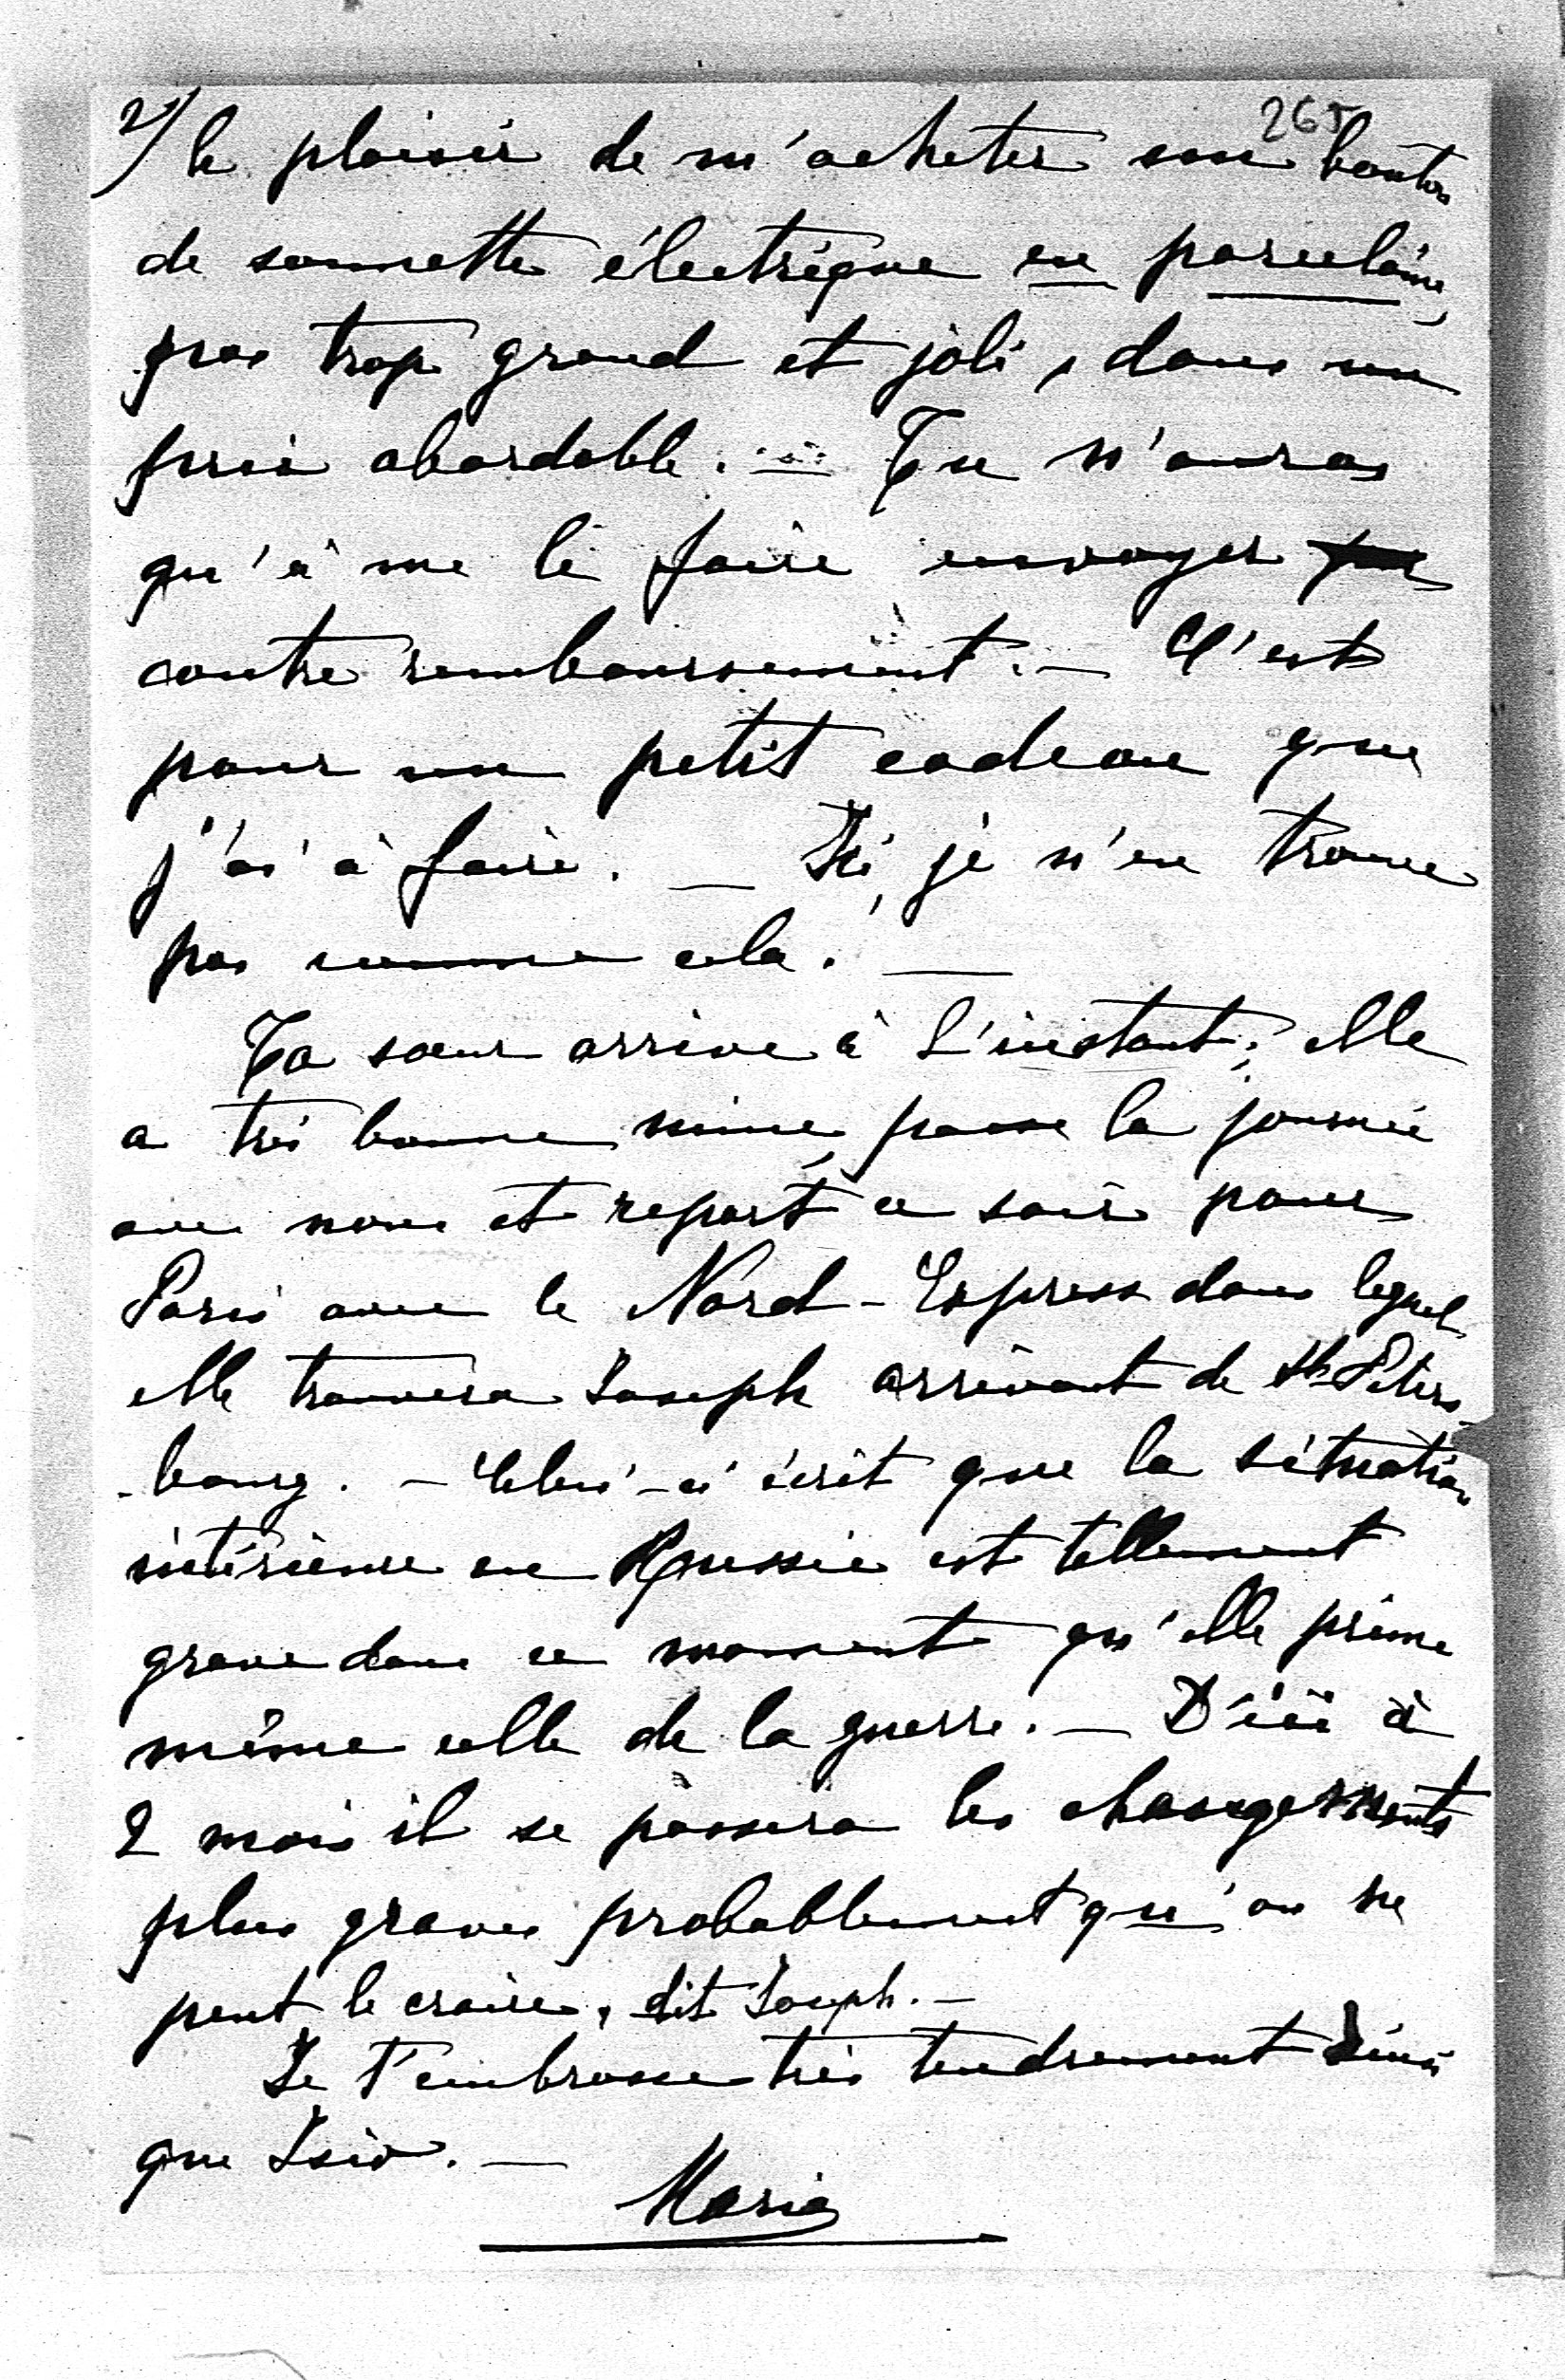 265
2/ le plaisir de m'acheter un bouton
de sonnette électrique en porcelaine,
pas trop grand et joli, dans un
prix abordable. — Tu n'auras
qu'à me le faire envoyer
contre remboursement. — C'est
pour un petit cadeau que
j'ai à faire. — Ici, je n'en trouve
pas comme cela. —
Ta sœur arrive à l'instant; elle
a très bonne mine, passe la journée
avec nous et repart ce soir pour
Paris avec le Nord-Express dans lequel
elle trouvera Joseph arrivant de St Péters-
-bourg. — Celui-ci écrit que la situation
intérieure en Russie est tellement
grave dans ce moment qu'elle prime
même celle de la guerre. — D'ici à
2 mois il se passera les changements
plus graves probablement qu'on ne
peut le croire, dit Joseph. —
Je t'embrasse très tendrement ainsi
que Isio. —
Maria